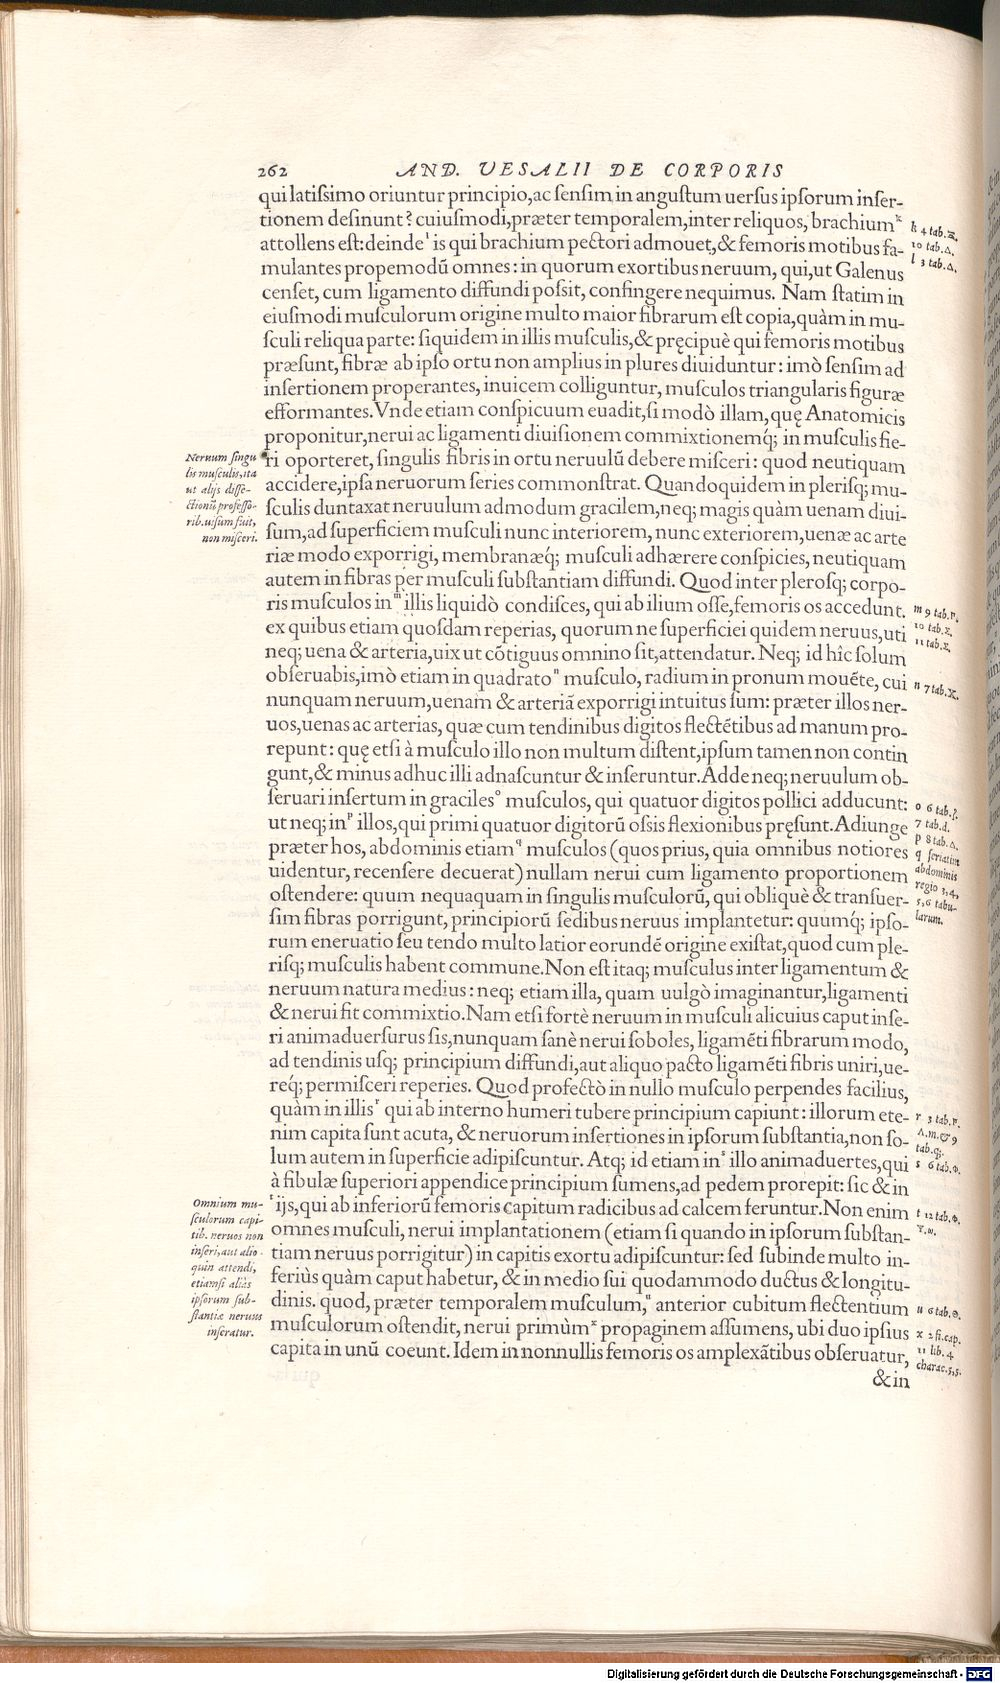 262 AND. VESALII DE CORPORIS
qui latiſsimo oriuntur principio,ac ſenſim in anguſtum uerſus ipſorum inſer-
tionem deſinunt? cuiuſmodi,præter temporalem,inter reliquos, brachium k
attollens eſt: deinde l is qui brachium pectori admouet,& femoris motibus fa-
mulantes propemodū omnes: in quorum exortibus neruum, qui,ut Galenus
cenſet, cum ligamento diffundi poſsit, confingere nequimus. Nam ſtatim in
eiuſmodi muſculorum origine multo maior fibrarum eſt copia,quàm in mu-
ſculi reliqua parte: ſiquidem in illis muſculis,& pręcipuè qui femoris motibus
præſunt, fibræ ab ipſo ortu non amplius in plures diuiduntur: imò ſenſim ad
inſertionem properantes, inuicem colliguntur, muſculos triangularis figuræ
efformantes. Vnde etiam conſpicuum euadit,ſi modò illam,quę Anatomicis
proponitur,nerui ac ligamenti diuiſionem commixtionemq́; in muſculis fie-
ri oporteret, ſingulis fibris in ortu neruulū debere miſceri: quod neutiquam
accidere,ipſa neruorum ſeries commonſtrat. Quandoquidem in pleriſq; mu-
ſculis duntaxat neruulum admodum gracilem,neq; magis quàm uenam diui-
ſum,ad ſuperficiem muſculi nunc interiorem, nunc exteriorem,uenæ ac arte
riæ modo exporrigi, membranæq́; muſculi adhærere conſpicies, neutiquam
autem in fibras per muſculi ſubſtantiam diffundi. Quod inter pleroſq; corpo-
ris muſculos in m illis liquidò condiſces, qui ab ilium oſſe,femoris os accedunt.
ex quibus etiam quoſdam reperias, quorum ne ſuperficiei quidem neruus,uti
neq; uena & arteria,uix ut cōtiguus omnino ſit,attendatur. Neq; id hîc ſolum
obſeruabis,imò etiam in quadrato n muſculo, radium in pronum mouēte, cui
nunquam neruum,uenam & arteriā exporrigi intuitus ſum: præter illos ner-
uos,uenas ac arterias, quæ cum tendinibus digitos flectētibus ad manum pro-
repunt: quę etſi à muſculo illo non multum diſtent,ipſum tamen non contin
gunt,& minus adhuc illi adnaſcuntur & inſeruntur. Adde neq; neruulum ob-
ſeruari inſertum in graciles o muſculos, qui quatuor digitos pollici adducunt:
ut neq; in p illos,qui primi quatuor digitorū oſsis flexionibus pręſunt. Adiunge
præter hos, abdominis etiam q muſculos (quos prius, quia omnibus notiores
uidentur, recenſere decuerat) nullam nerui cum ligamento proportionem
oſtendere: quum nequaquam in ſingulis muſculorū, qui obliquè & tranſuer-
ſim fibras porrigunt, principiorū ſedibus neruus implantetur: quumq́; ipſo-
rum eneruatio ſeu tendo multo latior eorundē origine exiſtat,quod cum ple-
riſq; muſculis habent commune. Non eſt itaq; muſculus inter ligamentum &
neruum natura medius: neq; etiam illa, quam uulgò imaginantur,ligamenti
& nerui fit commixtio. Nam etſi fortè neruum in muſculi alicuius caput inſe-
ri animaduerſurus ſis,nunquam ſanè nerui ſoboles, ligamēti fibrarum modo,
ad tendinis uſq; principium diffundi,aut aliquo pacto ligamēti fibris uniri,ue-
req́; permiſceri reperies. Quod profectò in nullo muſculo perpendes facilius,
quàm in illis r qui ab interno humeri tubere principium capiunt: illorum ete-
nim capita ſunt acuta, & neruorum inſertiones in ipſorum ſubſtantia,non ſo-
lum autem in ſuperficie adipiſcuntur. Atq; id etiam in s illo animaduertes,qui
à fibulæ ſuperiori appendice principium ſumens,ad pedem prorepit: ſic & in
t ijs,qui ab inferiorū femoris capitum radicibus ad calcem feruntur. Non enim
omnes muſculi, nerui implantationem (etiam ſi quando in ipſorum ſubſtan-
tiam neruus porrigitur) in capitis exortu adipiſcuntur: ſed ſubinde multo in-
feriùs quàm caput habetur, & in medio ſui quodammodo ductus & longitu-
dinis. quod, præter temporalem muſculum, u anterior cubitum flectentium
muſculorum oſtendit, nerui primùm x propaginem aſſumens, ubi duo ipſius
capita in unū coeunt. Idem in nonnullis femoris os amplexātibus obſeruatur,
& in
Neruum ſingu
lis muſculis, ita
ut alijs diſſe-
ctionū profeſſo-
rib. uiſum fuit,
non miſceri.
Omnium mu-
ſculorum capi-
tib. neruos non
inſeri, aut alio-
quin attendi,
etiamſi aliàs
ipſorum ſub-
ſtantiæ neruus
inſeratur.
k 4 tab.
10 tab. Δ.
l 3 tab. Δ.
m 9 tab.
10 tab.
11 tab.
n 7 tab.
o 6 tab.
7 tab. d.
p 8 tab. Δ.
q ſeriatim
abdominis
regio 3,4,
5,6 tabu-
larum.
r 3 tab. Γ.
Δ. m. & 9
tab. q.
s 6 tab. Φ.
t 12 tab. Φ.
Ψ. ω.
u 6 tab. Θ.
x 2 fi. cap.
11 lib. 4
charac. 5,5.
Digitalisierung gefördert durch die Deutsche Forschungsgemeinschaft - DFG